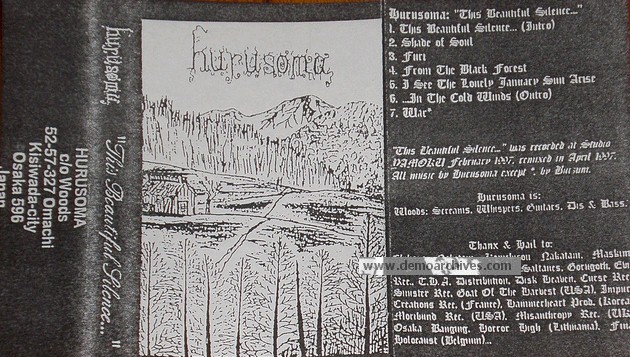 HURUSOMA
c/o Woods
52-57-327 Omachi
Kisiwada-city
Osaka 596
Japan
hurusoma "This Beautiful Silence..."
hurusoma
Hurusoma: "This Beautiful Silence..."
1. This Beautiful Silence... (Intro)
2. Shade of Soul
3. Furi
4. From The Black Forest
5. I See The Lonely January Sun Arise
6. ...In The Cold Winds (Outro)
7. War*
"This Beautiful Silence..." was recorded at Studio
YAMOKU February 1997, remixed in April 1997.
All music by Hurusoma except *, by Burzum.
Hurusoma is:
Woods: Screams, Whispers, Guitars, Dis & Bass.
Thanx & Hail to:
Nakatani, Maskim
www.demoarchives.com
Saltairs, Gorugoth,
Rec., T.H.A. Distribution, Disk Heaven, Curse Rec
Sinister Rec, Goat Of The Harvest (USA), Impure
Creations Rec. (France), Hammerheart Prod. (Korea
Moribund Rec. (USA), Misanthropy Rec. (UK
Osaka Banging, Horror High (Lithuania),
Holocaust (Belgium)...